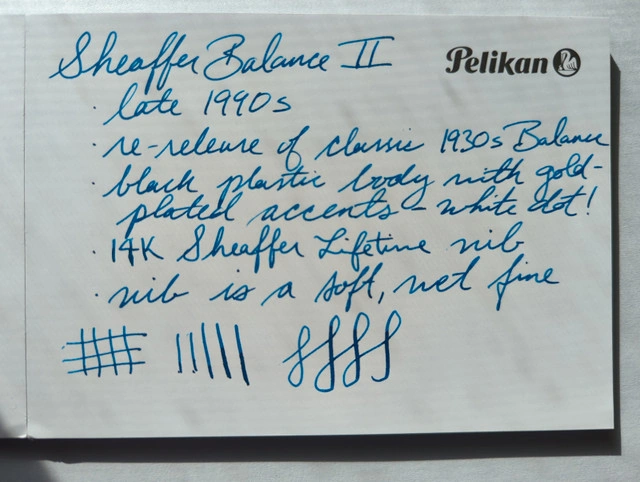 Sheaffer Balance II
Pelikan
· late 1990s
· re-release of classic 1930s Balance
· black plastic body with gold-
plated accents - white dot!
· 14K Sheaffer Lifetime nib
· nib is a soft, wet fine